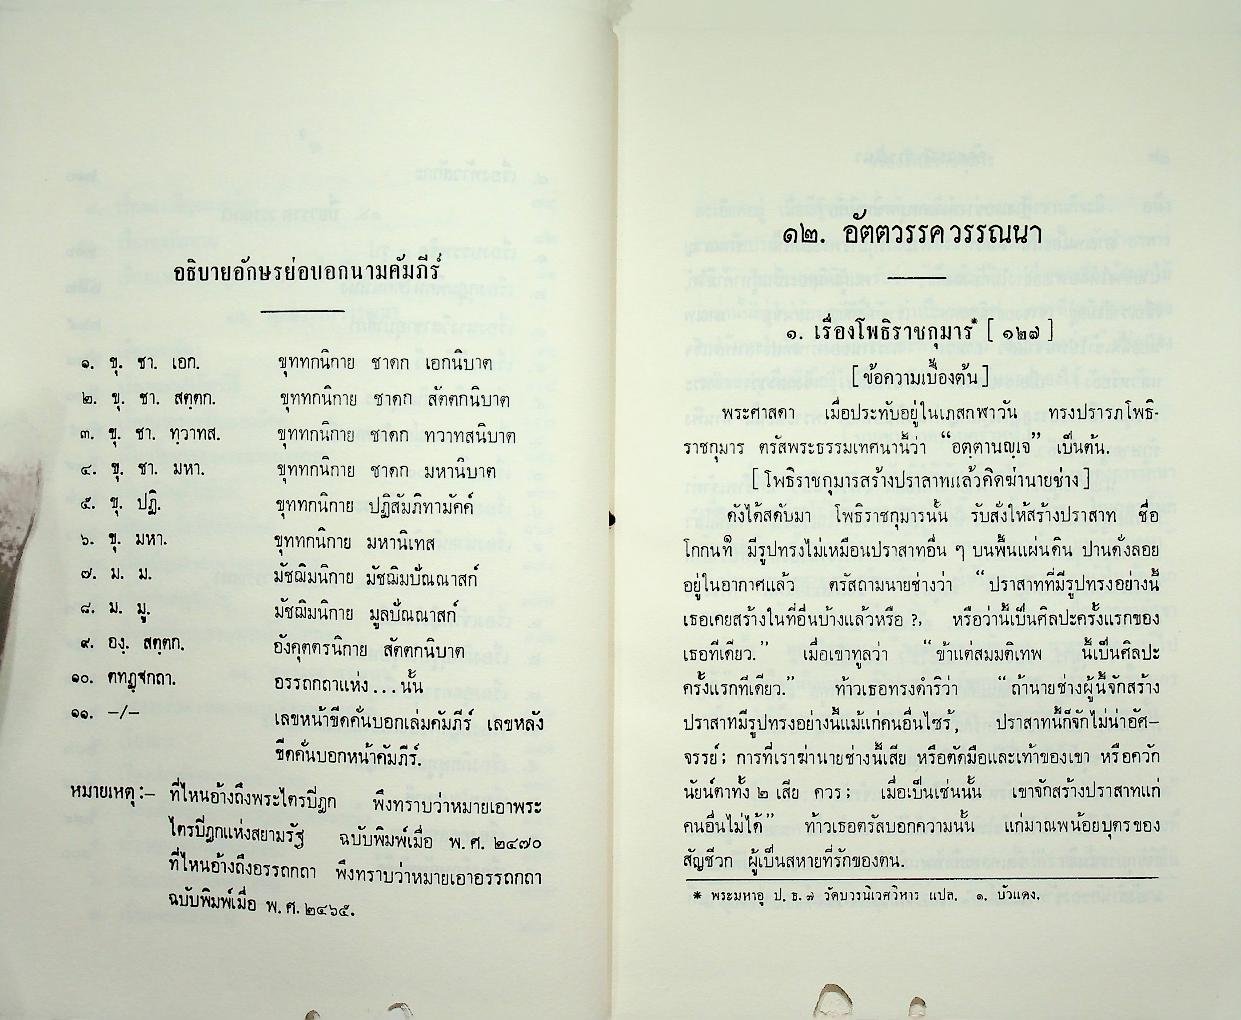 อธิบายอักษรย่อบอกนามคัมภีร์
๑. ขุ. ชา. เอก. ขุททกนิกาย ชาดก เอกนิบาต
๒. ขุ. ชา. สตฺตก. ขุททกนิกาย ชาดก สัตตกนิบาต
๓. ขุ. ชา. ทฺวาทส. ขุททกนิกาย ชาดก ทวาทสนิบาต
๔. ขุ. ชา. มหา. ขุททกนิกาย ชาดก มหานิบาต
๕. ขุ. ปฏิ. ขุททกนิกาย ปฏิสัมภิทามัคค์
๖. ขุ. มหา. ขุททกนิกาย มหานิเทส
๗. ม. ม. มัชฌิมนิกาย มัชฌิมปัณณาสก์
๘. ม. มู. มัชฌิมนิกาย มูลปัณณาสก์
๙. องฺ. สตฺตก. อังคุตตรนิกาย สัตตกนิบาต
๑๐. ตทฏฺฐกถา. อรรถกถาแห่ง...นั้น
๑๑. –/– เลขหน้าขีดคั่นบอกเล่มคัมภีร์ เลขหลัง
ขีดคั่นบอกหน้าคัมภีร์.
หมายเหตุ:– ที่ไหนอ้างถึงพระไตรปิฎก พึงทราบว่าหมายเอาพระ
ไตรปิฎกแห่งสยามรัฐ ฉบับพิมพ์เมื่อ พ.ศ. ๒๔๗๐
ที่ไหนอ้างถึงอรรถกถา พึงทราบว่าหมายเอาอรรถกถา
ฉบับพิมพ์เมื่อ พ.ศ. ๒๔๖๕.
๑๒. อัตตวรรควรรณนา
๑. เรื่องโพธิราชกุมาร* [ ๑๒๗ ]
[ ข้อความเบื้องต้น ]
พระศาสดา เมื่อประทับอยู่ในเภสกฬาวัน ทรงปรารภโพธิ-
ราชกุมาร ตรัสพระธรรมเทศนานี้ว่า “อตฺตานญฺเจ” เป็นต้น.
[ โพธิราชกุมารสร้างปราสาทแล้วคิดฆ่านายช่าง ]
ดังได้สดับมา โพธิราชกุมารนั้น รับสั่งให้สร้างปราสาท ชื่อ
โกกนท๑ มีรูปทรงไม่เหมือนปราสาทอื่น ๆ บนพื้นแผ่นดิน ปานดั่งลอย
อยู่ในอากาศแล้ว ตรัสถามนายช่างว่า “ปราสาทที่มีรูปทรงอย่างนี้
เธอเคยสร้างในที่อื่นบ้างแล้วหรือ ?, หรือว่านี้เป็นศิลปะครั้งแรกของ
เธอทีเดียว.” เมื่อเขาทูลว่า “ข้าแต่สมมติเทพ นี้เป็นศิลปะ
ครั้งแรกทีเดียว.” ท้าวเธอทรงดำริว่า “ถ้านายช่างผู้นี้จักสร้าง
ปราสาทมีรูปทรงอย่างนี้แม้แก่คนอื่นไซร้, ปราสาทนี้ก็จักไม่น่าอัศ–
จรรย์; การที่เราฆ่านายช่างนี้เสีย หรือตัดมือและเท้าของเขา หรือควัก
นัยน์ตาทั้ง ๒ เสีย ควร; เมื่อเป็นเช่นนั้น เขาจักสร้างปราสาทแก่
คนอื่นไม่ได้” ท้าวเธอตรัสบอกความนั้น แก่มาณพน้อยบุตรของ
สัญชีวก ผู้เป็นสหายที่รักของตน.
* พระมหาอู ป. ธ. ๗ วัดบวรนิเวศวิหาร แปล. ๑. บัวแดง.